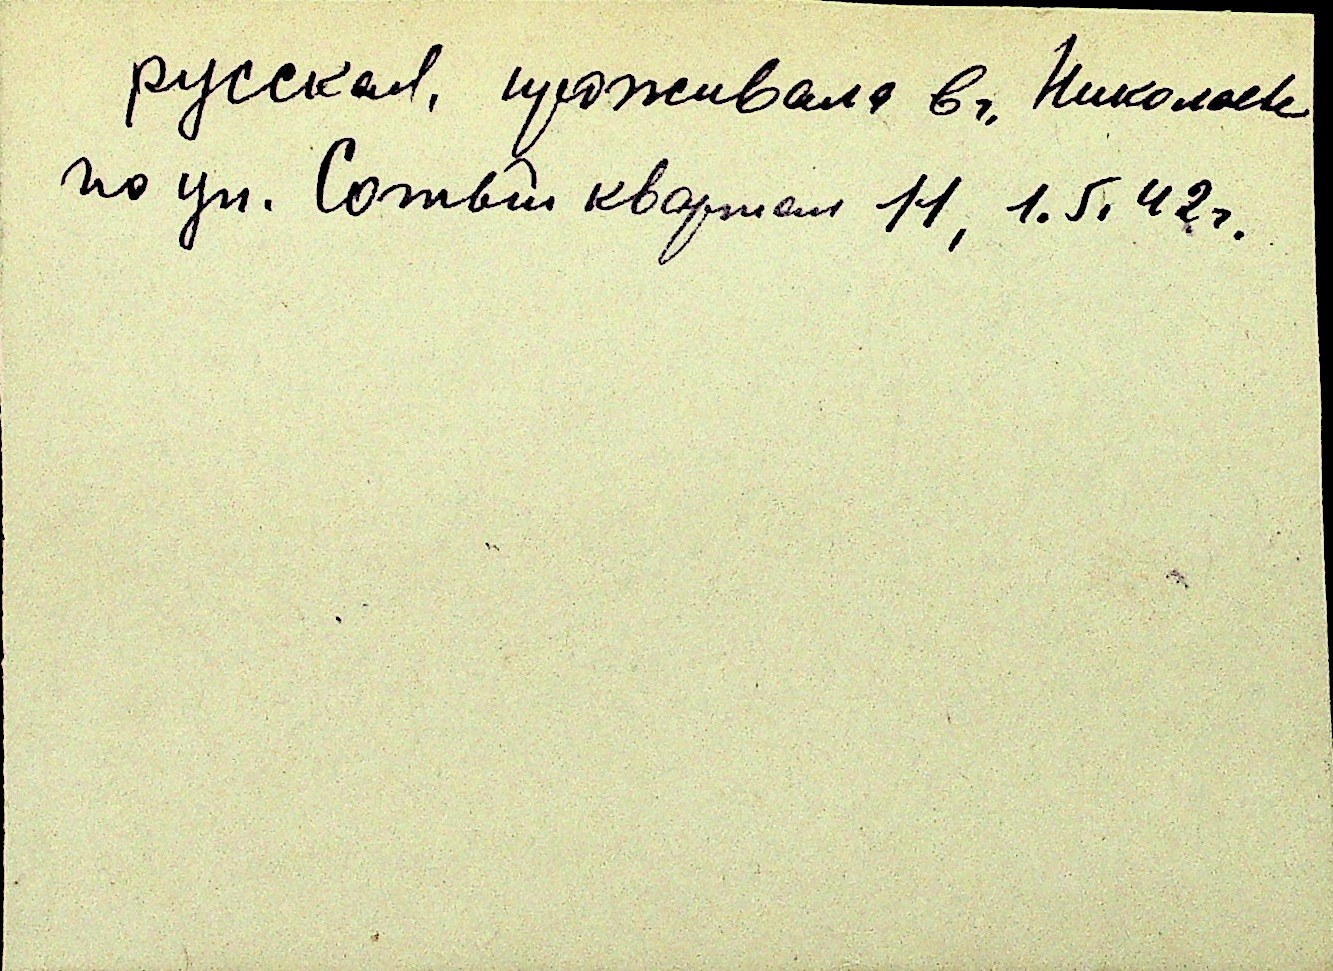 русская, проживала в г. Николаев
по ул. Сотый квартал 11, 1.5.42г.